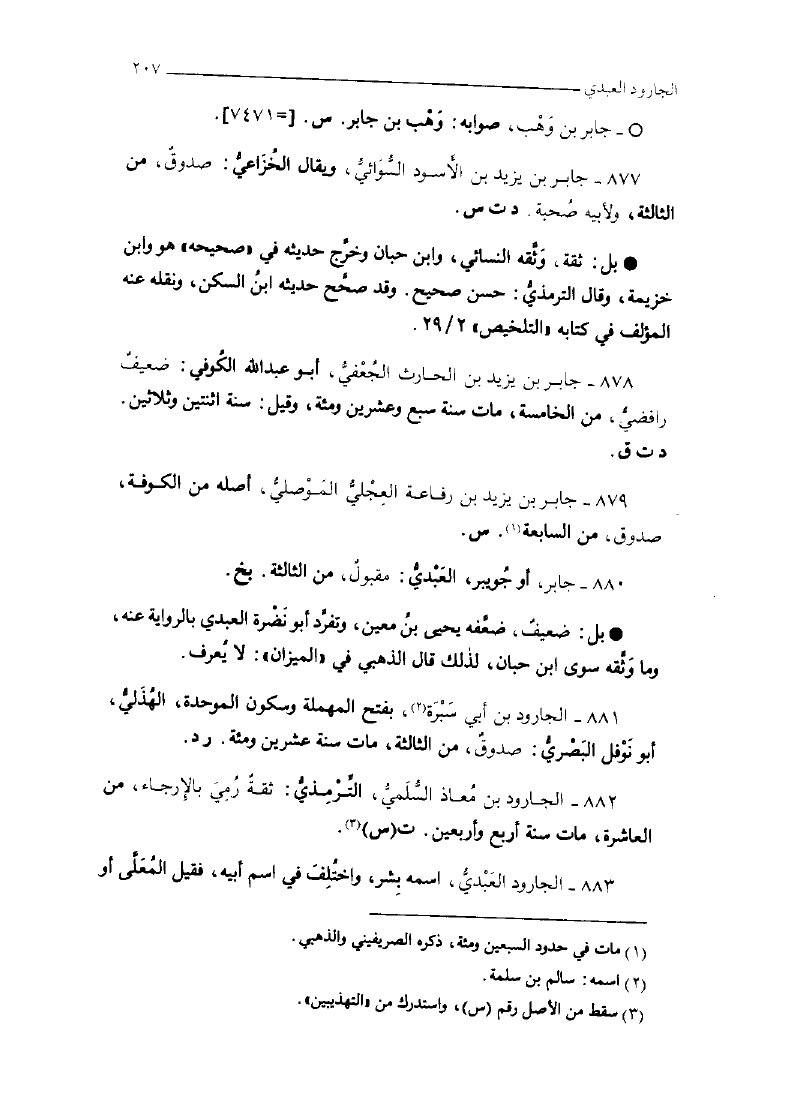 الجارود العبدي ٢٠٧
○ ـ جابر بن وَهْب، صوابه: وَهْب بن جابر. س. [=٧٤٧١].
٨٧٧ ـ جابر بن يزيد بن الأسود السُّوَائيُّ، ويقال الخُزَاعيُّ: صدوقٌ، من
الثالثة، ولأبيه صُحبة. د ت س.
● بل: ثقة، وَثَّقه النسائي، وابن حبان وخرَّج حديثه في «صحيحه» هو وابن
خزيمة، وقال الترمذيُّ: حسن صحيح. وقد صحَّح حديثه ابنُ السكن، ونقله عنه
المؤلف في كتابه «التلخيص» ٢/ ٢٩.
٨٧٨ ـ جابر بن يزيد بن الحارث الجُعْفيُّ، أبو عبدالله الكُوفي: ضعيفٌ
رافضيٌّ، من الخامسة، مات سنة سبع وعشرين ومئة، وقيل: سنة اثنتين وثلاثين.
د ت ق.
٨٧٩ ـ جابر بن يزيد بن رفاعة العِجْليُّ المَوْصليُّ، أصله من الكوفة،
صدوق، من السابعة(١). س.
٨٨٠ ـ جابر، أو جُويبر، العَبْديُّ: مقبولٌ، من الثالثة. بخ.
● بل: ضعيفٌ، ضعَّفه يحيى بنُ معين، وتفرَّد أبو نَضْرة العبدي بالرواية عنه،
وما وَثَّقه سوى ابن حبان، لذلك قال الذهبي في «الميزان»: لا يُعرف.
٨٨١ ـ الجارود بن أبي سَبْرَة(٢)، بفتح المهملة وسكون الموحدة، الهُذَليُّ،
أبو نَوْفل البَصْريُّ: صدوقٌ، من الثالثة، مات سنة عشرين ومئة. ر د.
٨٨٢ ـ الجارود بن مُعاذ السُّلَميُّ، التِّرْمِذيُّ: ثقةٌ رُمِيَ بالإرجاء، من
العاشرة، مات سنة أربع وأربعين. ت(س)(٣).
٨٨٣ ـ الجارود العَبْديُّ، اسمه بِشر، واختُلِفَ في اسم أبيه، فقيل المُعَلَّى أو
(١) مات في حدود السبعين ومئة، ذكره الصريفيني والذهبي.
(٢) اسمه: سالم بن سلمة.
(٣) سقط من الأصل رقم (س)، واستدرك من «التهذيبين».